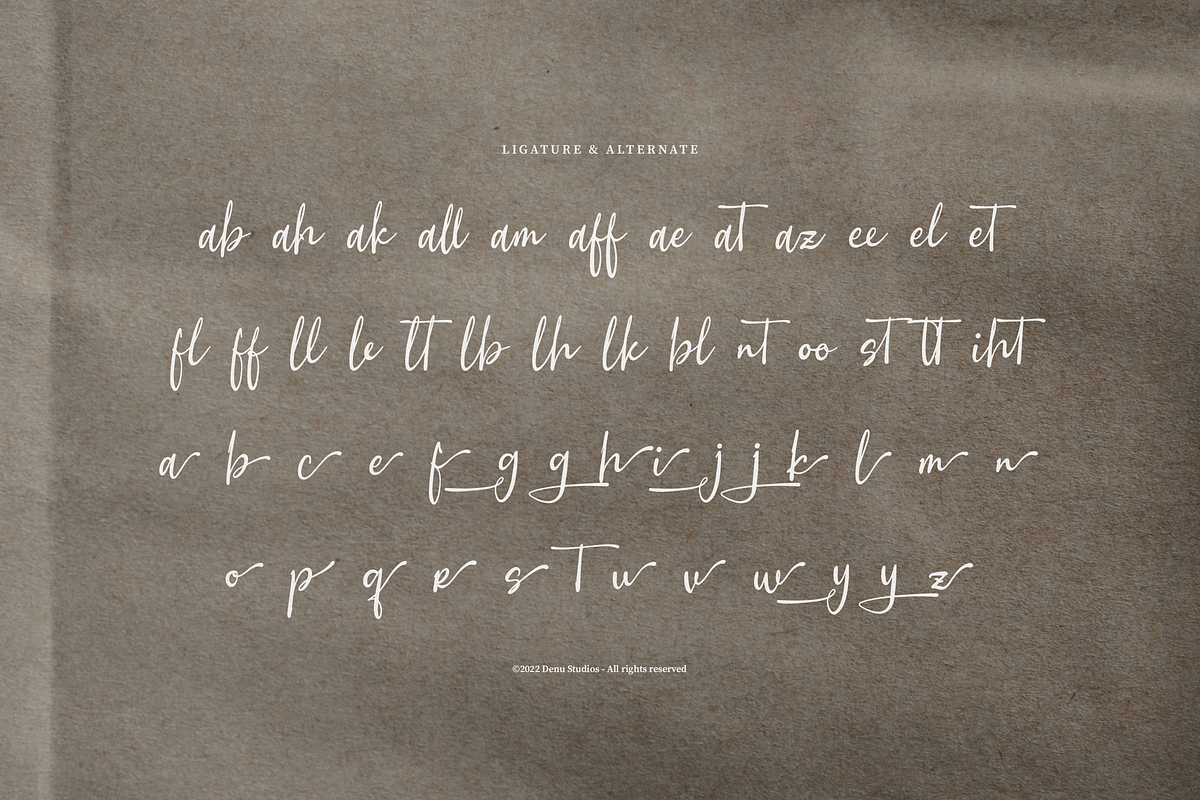 LIGATURE & ALTERNATE
ab ah ak all am aff ae at az ee el et
fl ff ll le lt lb lh lk bl nt oo st tt iht
a b c e f g g h i j j k l m n
o p q r s t u v w y y z
©2022 Denu Studios - All rights reserved